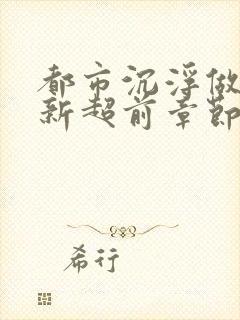 都市沉浮做
新超前章節
希行